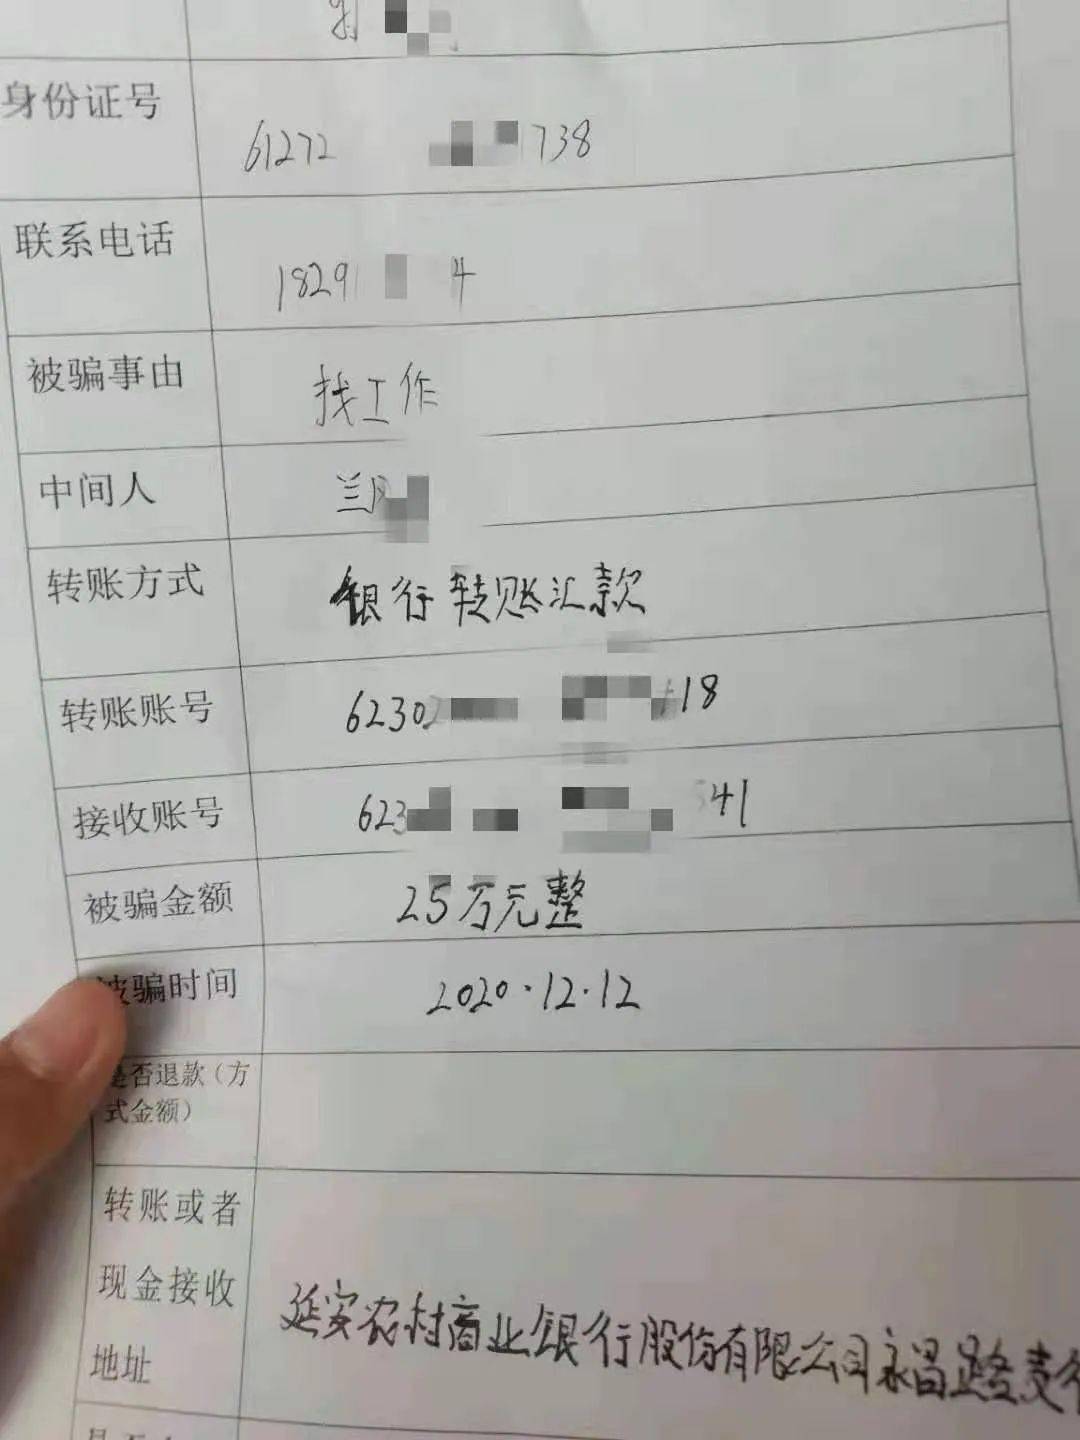 身份证号
61272 1738
联系电话
1829 4
被骗事由
找工作
中间人
兰
转账方式
银行转账汇款
转账账号
6230 18
接收账号
623 541
被骗金额
25万元整
被骗时间
2020.12.12
是否退款(方
式金额)
转账或者
现金接收
地址
延安农村商业银行股份有限公司永昌路支行